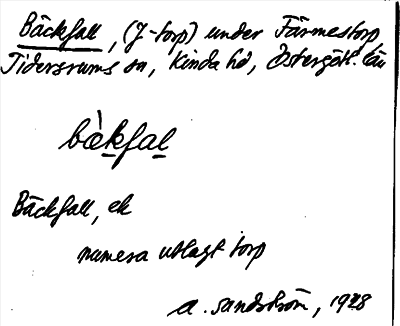 Bäckfall, (J-torp) under Färmestorp
Tidersrums sn, Kinda hd, Östergötl. län
bæ̀kfal
Bäckfall, ek
numera utlagt torp
A. Sandström, 1928